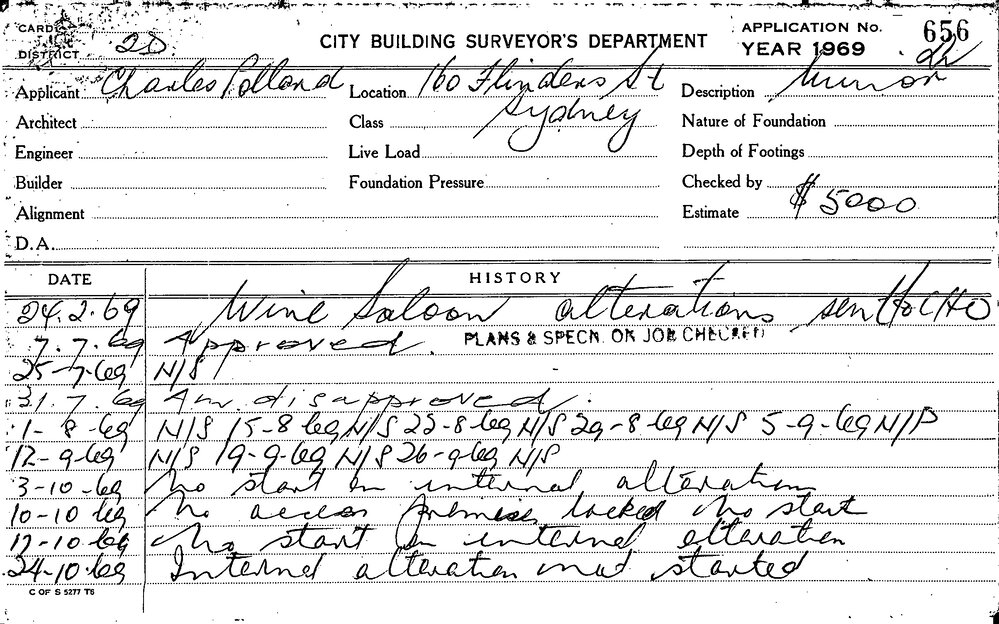 CARD
DISTRICT 2D
CITY BUILDING SURVEYOR'S DEPARTMENT
APPLICATION No. 656
YEAR 1969
Applicant Charles Polland
Location 160 Flinders St
Sydney
Description
Architect
Class
Nature of Foundation
Engineer
Live Load
Depth of Footings
Builder
Foundation Pressure
Checked by
Alignment
Estimate $5000
D.A.
DATE HISTORY
24.2.69 Wine Saloon alterations sent to CHO
7.7.69 Approved. PLANS & SPECN. ON JOB CHECKED
25-7-69 N/S
31.7.69 Am. disapproved.
1-8-69 N/S 15-8-69 N/S 22-8-69 N/S 29-8-69 N/S 5-9-69 N/P
12-9-69 N/S 19-9-69 N/S 26-9-69 N/S
3-10-69 No start on internal alteration
10-10-69 No access Premises locked No start
17-10-69 No start on internal alteration
24-10-69 Internal alteration not started
C OF S 5277 T6